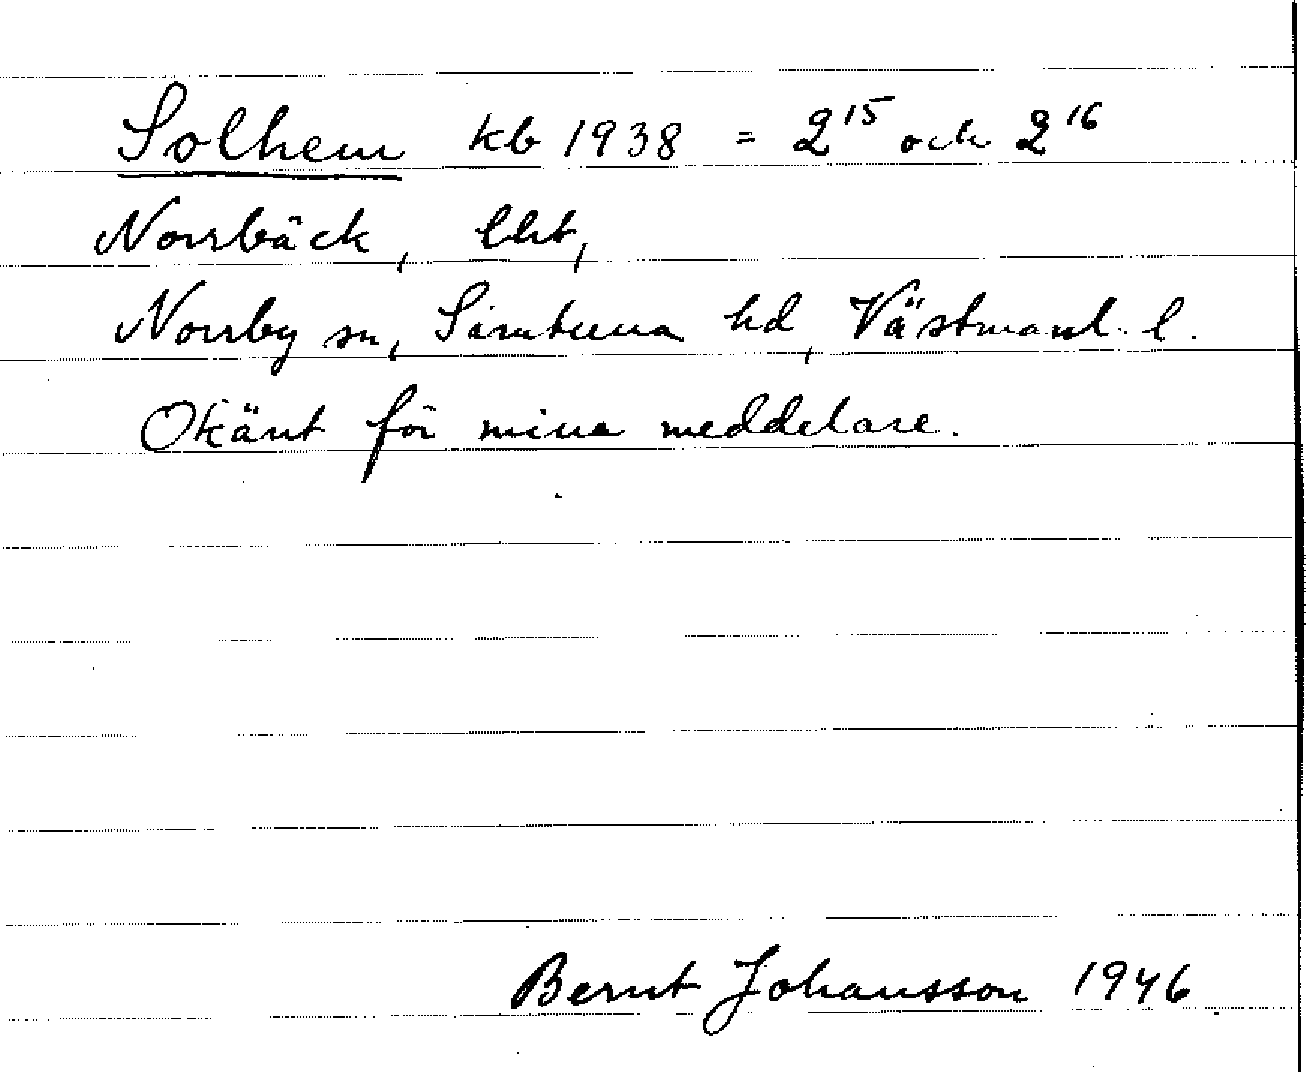 Solhem kb 1938 = 2¹⁵ och 2¹⁶
Norrbäck, lht,
Norrby sn, Simtuna hd, Västmanl. l.
Okänt för mina meddelare.
Bernt Johansson 1946